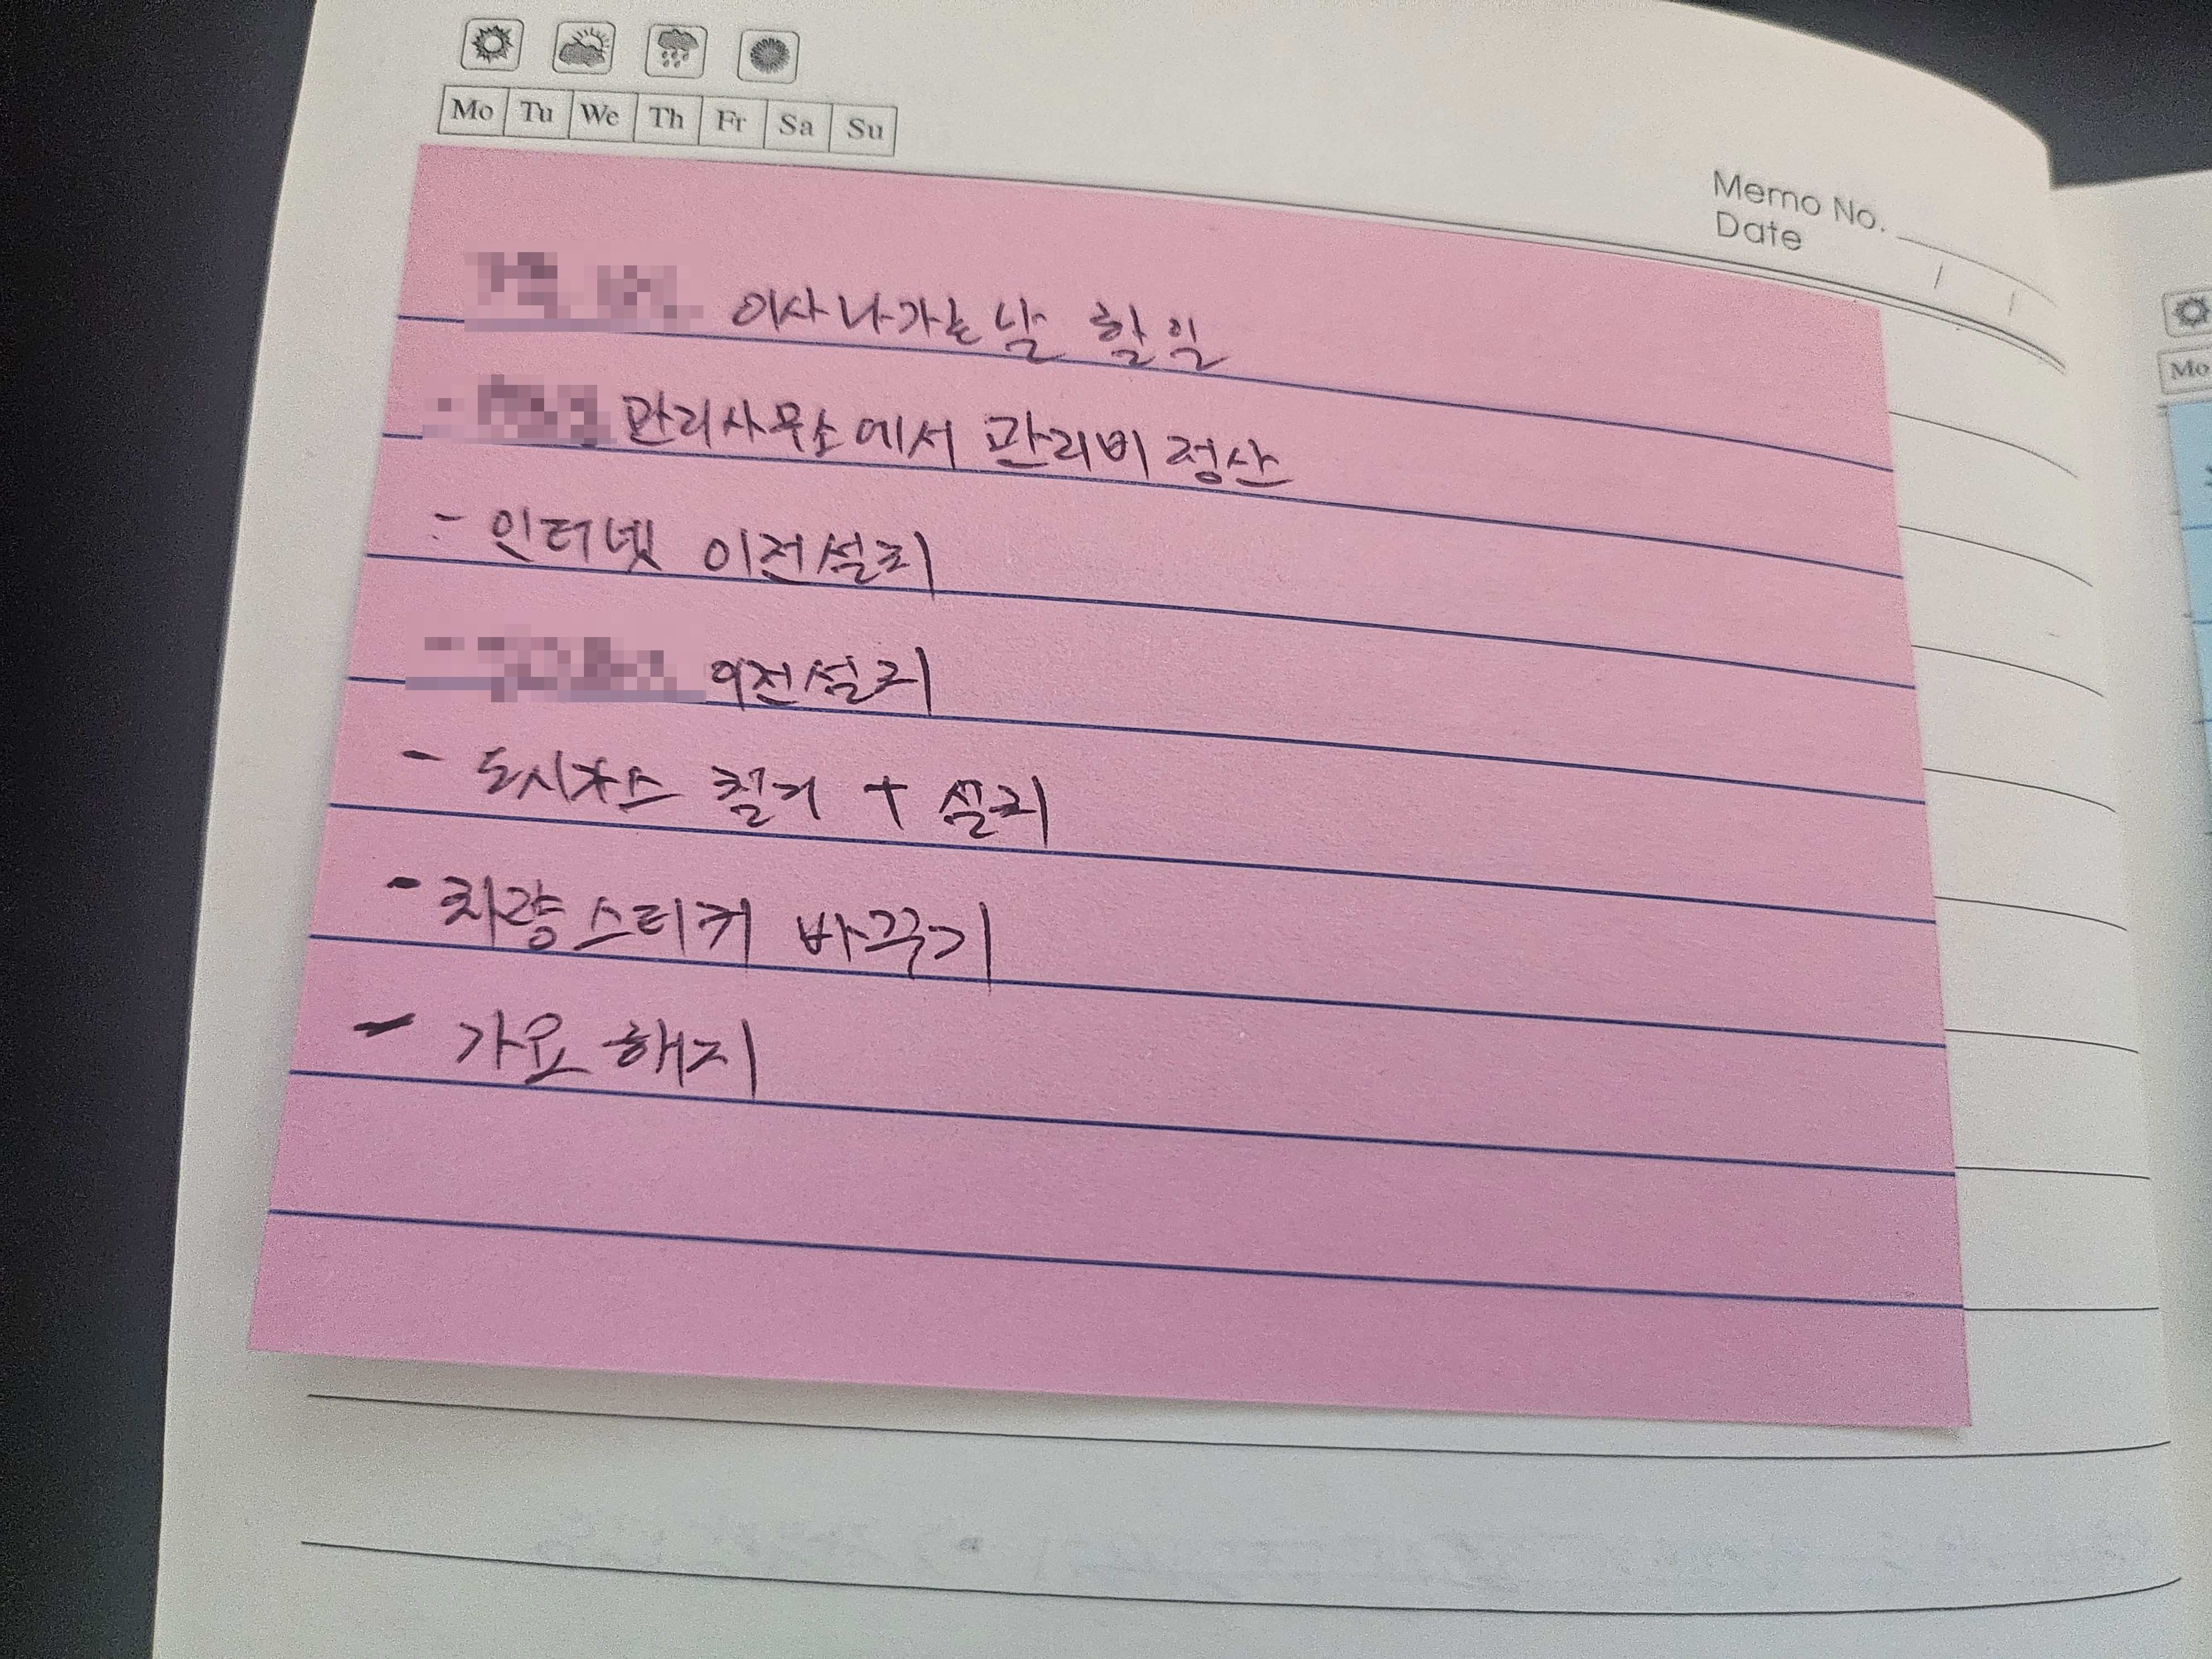 Mo Tu We Th Fr Sa Su
Memo No.
Date
이사 나가는 날 할 일
관리사무소에서 관리비 정산
- 인터넷 이전설치
이전설치
- 도시가스 철거 + 설치
- 차량스티커 바꾸기
- 가요 해지
Mo